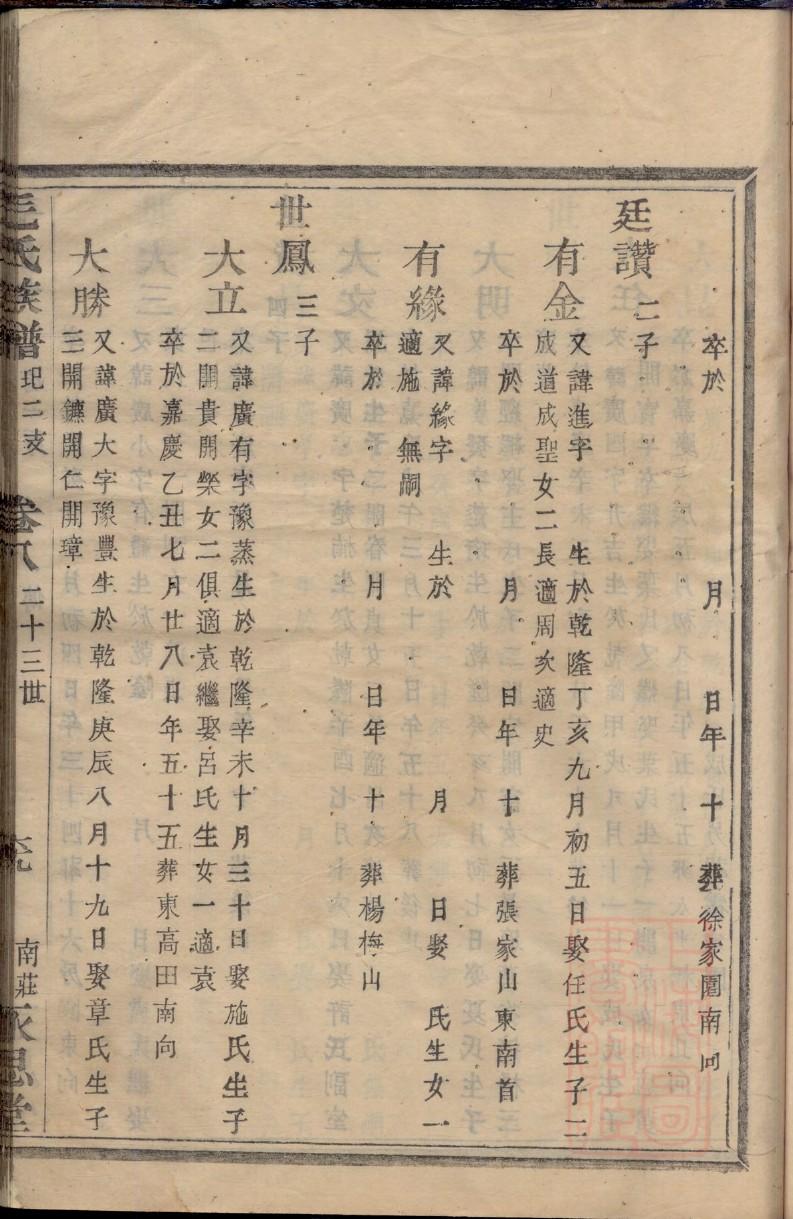 卒於 月 日年 十 葬徐家園南向
廷讚 二子
有金 又諱進字 生於乾隆丁亥九月初五日娶任氏生子二
成道成聖女二長適周次適史
卒於 月 日年 十 葬張家山東南首
有緣 又諱緣字 生於 月 日娶 氏生女一
適施 無嗣
卒於 月 日年 十 葬楊梅山
世鳳 三子
大立 又諱廣有字豫蒸生於乾隆辛未十月三十日娶施氏生子
二開貴開榮女二俱適袁繼娶呂氏生女一適袁
卒於嘉慶乙丑七月廿八日年五十五葬東高田南向
大勝 又諱廣大字豫豐生於乾隆庚辰八月十九日娶章氏生子
三開鑣開仁開璋
毛氏族譜 圯二支 卷八 二十三世 南莊永思堂